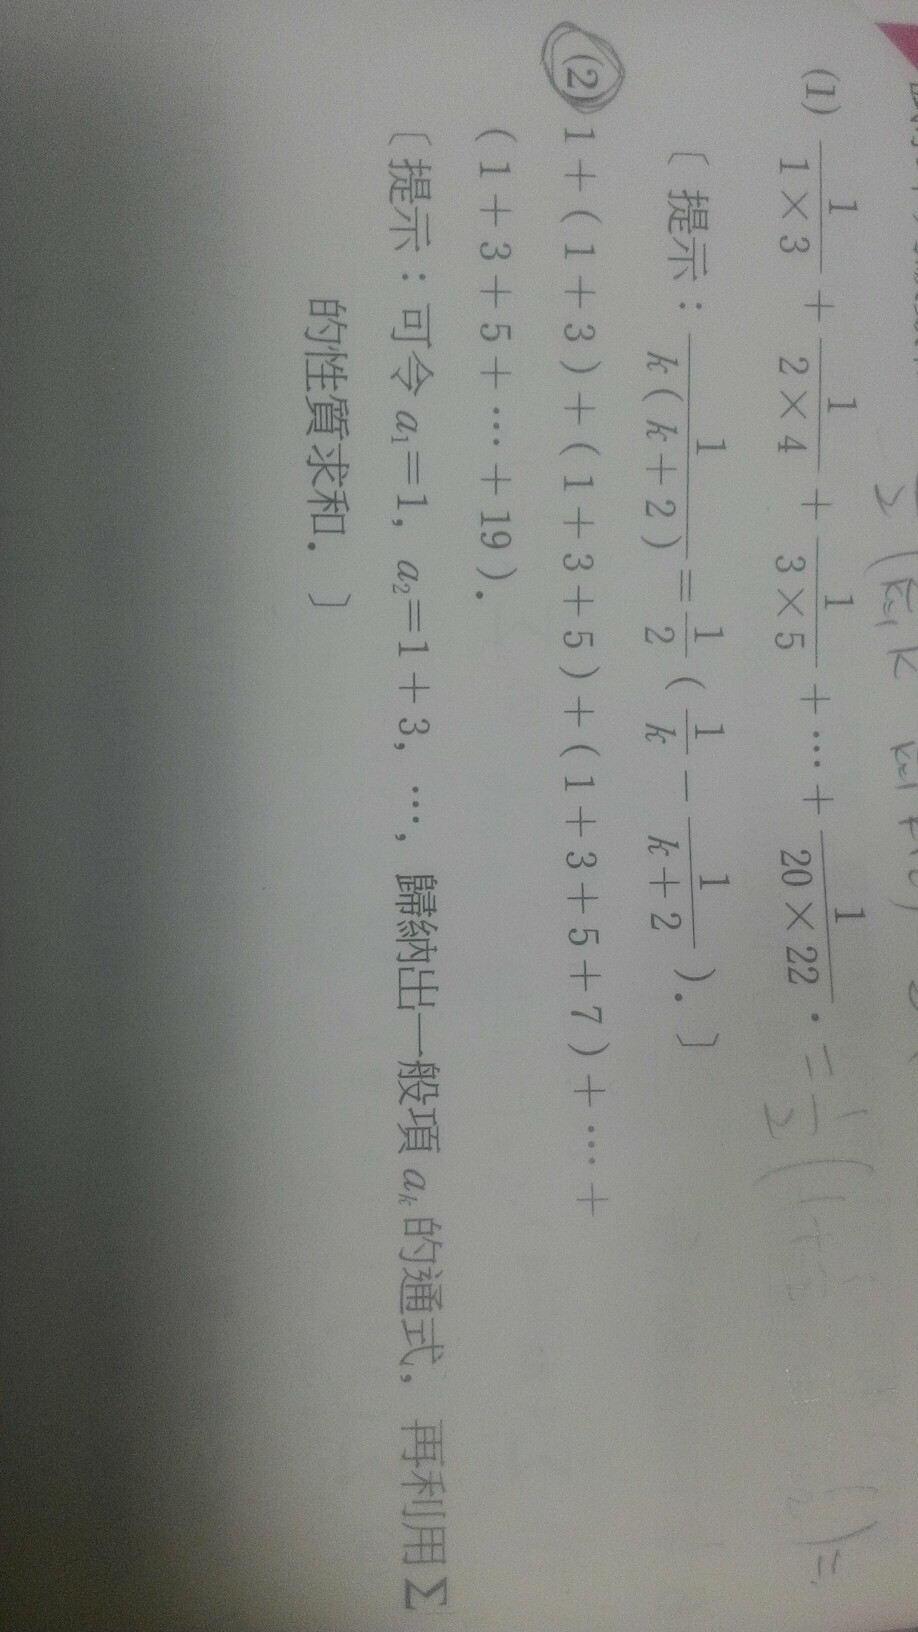 (1) 1/(1×3) + 1/(2×4) + 1/(3×5) + ⋯ + 1/(20×22) . = 1/2 (1+
〔提示：1/(k(k+2)) = 1/2 ( 1/k − 1/(k+2) ).〕
(2) 1+(1+3)+(1+3+5)+(1+3+5+7)+⋯+
(1+3+5+⋯+19).
〔提示：可令 a₁=1, a₂=1+3, ⋯, 歸納出一般項 aₖ 的通式, 再利用 Σ
的性質求和.〕